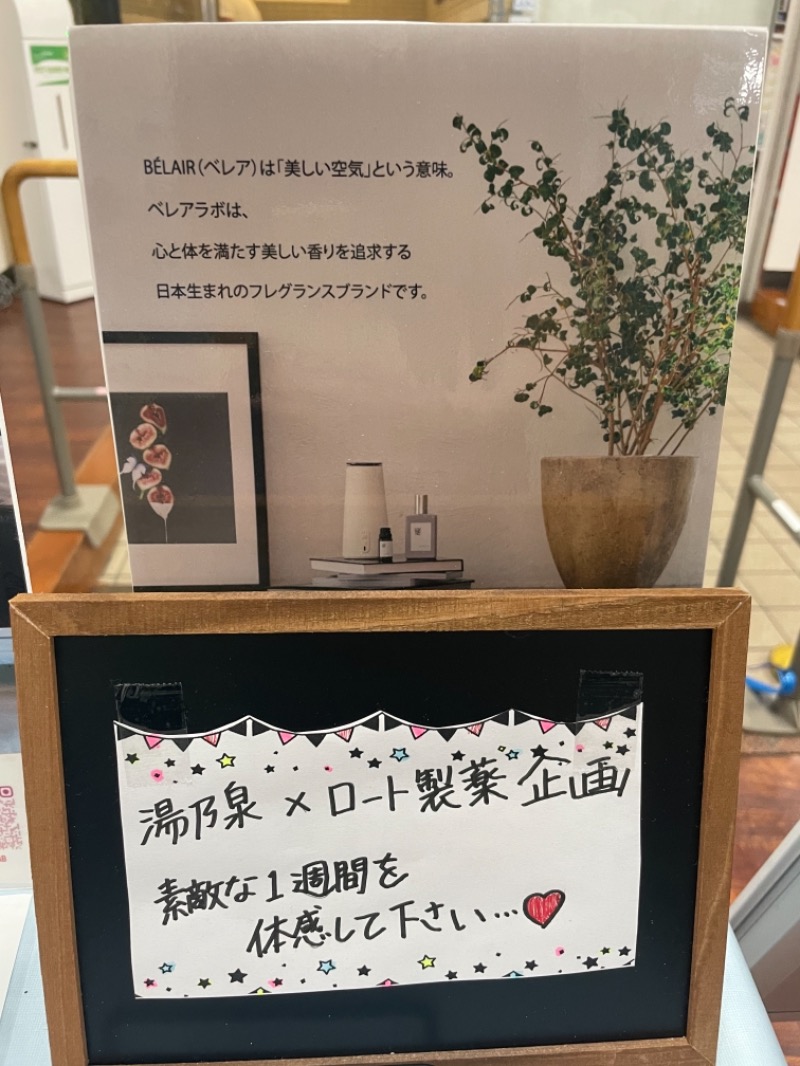 BÉLAIR(ベレア)は「美しい空気」という意味。
ベレアラボは、
心と体を満たす美しい香りを追求する
日本生まれのフレグランスブランドです。
湯乃泉 × ロート製薬 企画
素敵な1週間を
体感して下さい…